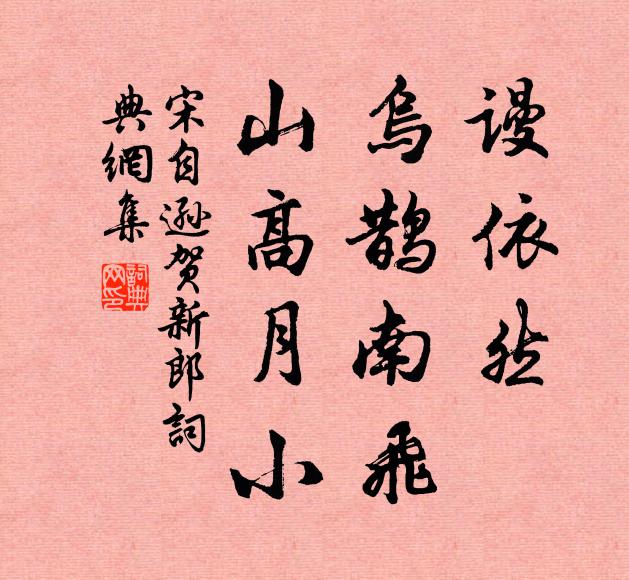 谩依然
乌鹊南飞
山高月小
宋自逊贺新郎词
典網集
詞典
网印